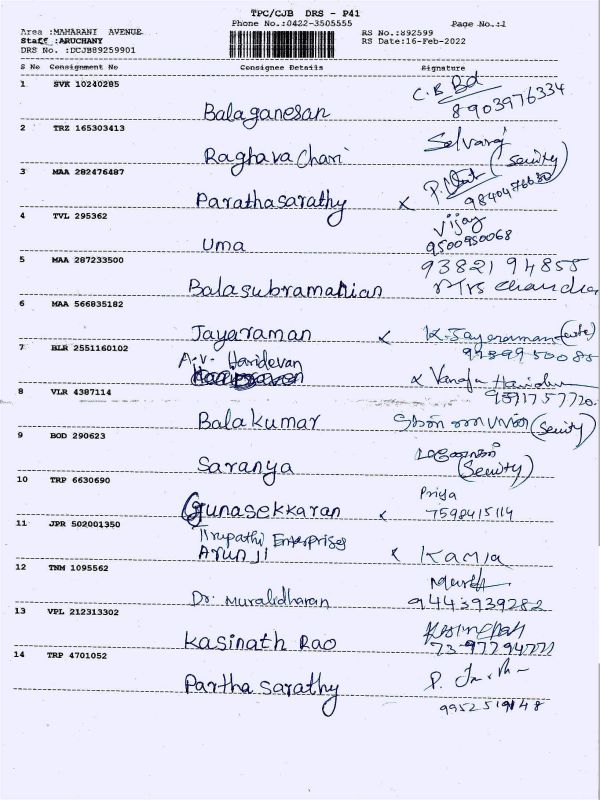 TPC/CJB DRS - P41
Phone No.:0422-3505555
Page No.:1
Area :MAHARANI AVENUE
Staff :ARUCHANY
DRS No. :DCJB89259901
RS No.:892599
RS Date:16-Feb-2022
S No Consignment No Consignee Details Signature
1 SVK 10240285
Balaganesan
C.B Bd
8903976334
2 TRZ 165303413
Raghava Chari
Selvaraj
(Seuity)
3 MAA 282476487
Parathasarathy x
4 TVL 295362
Uma
Vijay
9500950068
5 MAA 287233500
Balasubramanian
93821 94855
Mrs Chandra
6 MAA 566835182
Jayaraman x K. Jayaraman
7 BLR 2551160102
A.V. Haridevan
x Vanaja
8 VLR 4387114
Balakumar
(Seuity)
9 BOD 290623
Saranya
(Seuity)
10 TRP 6630690
Gunasekkaran x
Priya
7598415114
11 JPR 502001350
Tirupathi Enterprises
Arunji x Kamla
12 TNM 1095562
Dr. Muralidharan
9443939282
13 VPL 212313302
Kasinath Rao
14 TRP 4701052
Partha Sarathy
P.